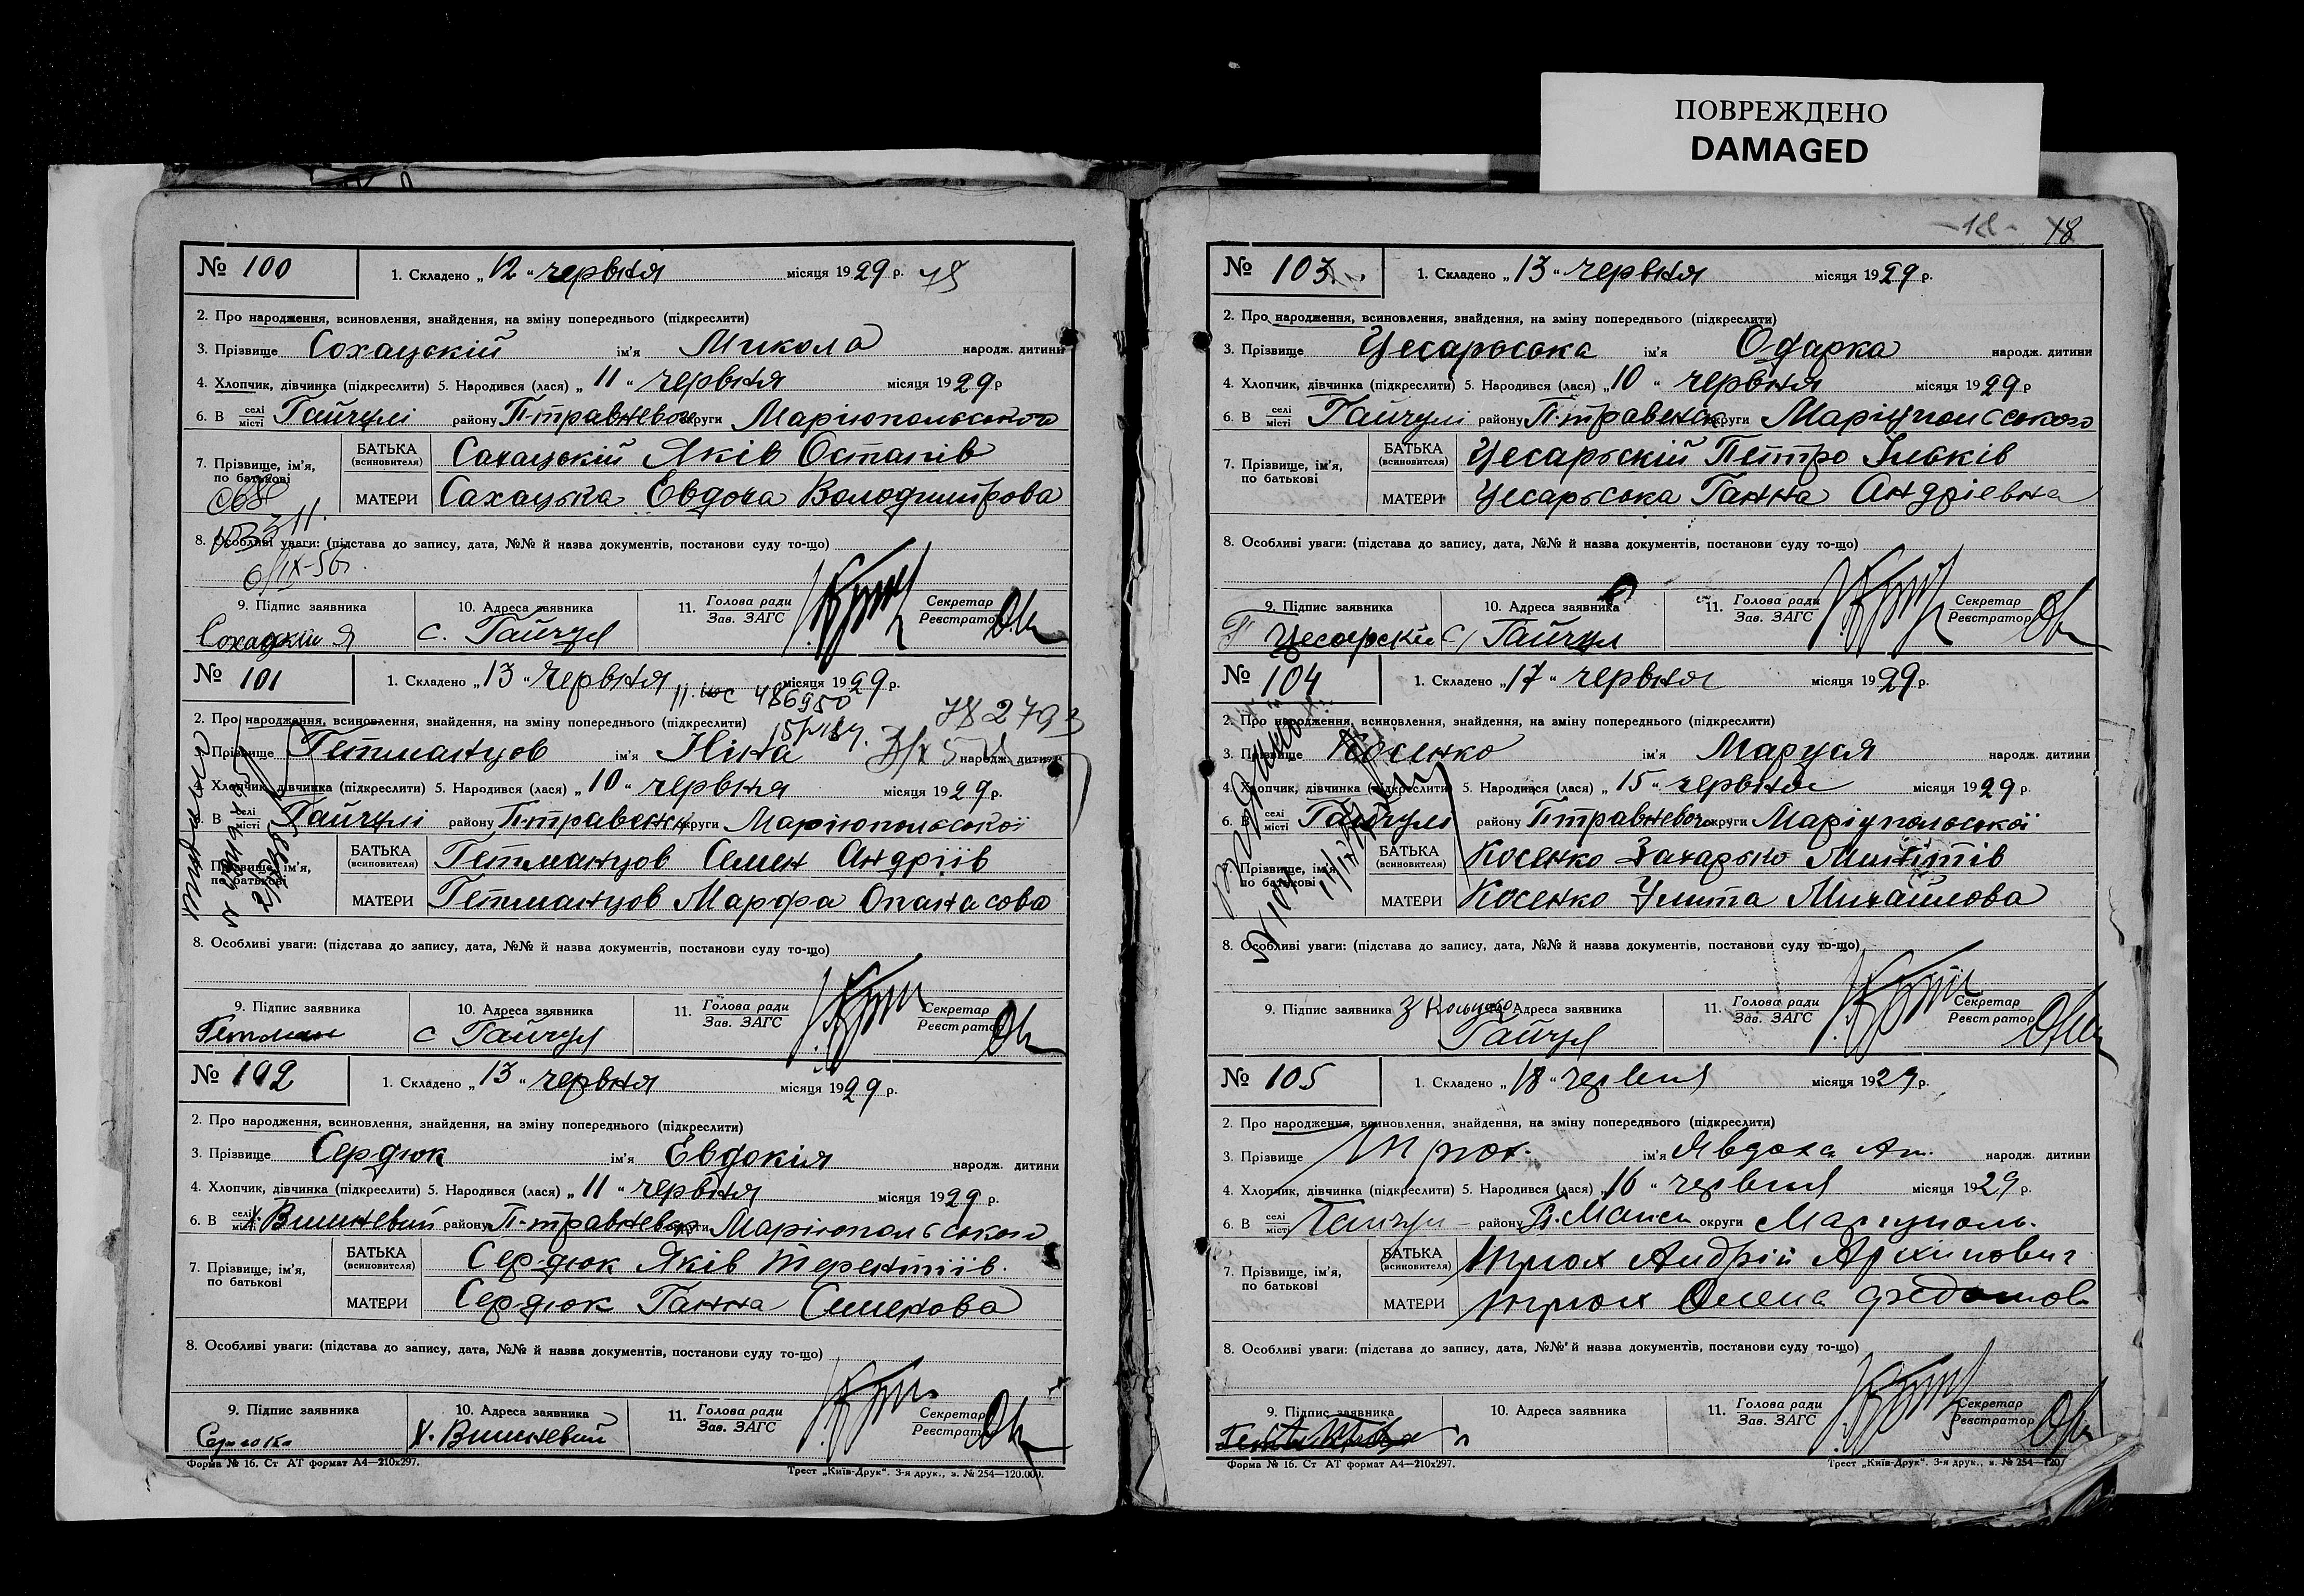 ПОВРЕЖДЕНО
DAMAGED
№ 100
1. Складено „ 12 “ червня місяця 1929 р.
2. Про народження, всиновлення, знайдення, на зміну попереднього (підкреслити)
3. Прізвище Сохацокій ім'я Микола народж. дитини
4. Хлопчик, дівчинка (підкреслити) 5. Народився (лася) „ 11 “ червня місяця 1929 р
6. В селі місті Гайчулі району П-травневого округи Маріюпольського
7. Прізвище, ім'я, по батькові
БАТЬКА (всиновителя) Сахацькій Яків Остапів
МАТЕРИ Сахацька Евдоча Володимирова
8. Особливі уваги: (підстава до запису, дата, №№ й назва документів, постанови суду то-що)
6/IX-56.
9. Підпис заявника
10. Адреса заявника
11. Голова ради Зав. ЗАГС
Секретар Реєстратор
Сохацкій Я
с. Гайчул
№ 101
1. Складено „ 13 “ червня місяця 1929 р.
486950
2. Про народження, всиновлення, знайдення, на зміну попереднього (підкреслити)
3. Прізвище Гетманцов ім'я Ніна народж. дитини
4. Хлопчик, дівчинка (підкреслити) 5. Народився (лася) „ 10 “ червня місяця 1929 р.
6. В селі місті Гайчулі району П-травенн округи Маріюпольської
7. Прізвище, ім'я, по батькові
БАТЬКА (всиновителя) Гетманцов Семен Андріїв
МАТЕРИ Гетманцов Марфа Опанасова
8. Особливі уваги: (підстава до запису, дата, №№ й назва документів, постанови суду то-що)
9. Підпис заявника
10. Адреса заявника
11. Голова ради Зав. ЗАГС
Секретар Реєстратор
Гетман
с Гайчул
№ 102
1. Складено „ 13 “ червня місяця 1929 р.
2. Про народження, всиновлення, знайдення, на зміну попереднього (підкреслити)
3. Прізвище Сердюк ім'я Евдокія народж. дитини
4. Хлопчик, дівчинка (підкреслити) 5. Народився (лася) „ 11 “ червня місяця 1929 р.
6. В селі місті х. Вишневий району П-травневого округи Маріюпольського
7. Прізвище, ім'я, по батькові
БАТЬКА (всиновителя) Сердюк Яків Терентіїв.
МАТЕРИ Сердюк Ганна Семенова
8. Особливі уваги: (підстава до запису, дата, №№ й назва документів, постанови суду то-що)
9. Підпис заявника
10. Адреса заявника
11. Голова ради Зав. ЗАГС
Секретар Реєстратор
х. Вишневий
Форма № 16. Ст АТ формат А4—210х297.
Трест „Київ-Друк“. 3-я друк., з. № 254—120.000.
-18- 18
№ 103
1. Складено „ 13 “ червня місяця 1929 р.
2. Про народження, всиновлення, знайдення, на зміну попереднього (підкреслити)
3. Прізвище Цесарьська ім'я Одарка народж. дитини
4. Хлопчик, дівчинка (підкреслити) 5. Народився (лася) „ 10 “ червня місяця 1929 р
6. В селі місті Гайчулі району П-травенськ округи Маріупольського
7. Прізвище, ім'я, по батькові
БАТЬКА (всиновителя) Цесарьскій Петро Ільків
МАТЕРИ Цесарьська Ганна Андріевна
8. Особливі уваги: (підстава до запису, дата, №№ й назва документів, постанови суду то-що)
9. Підпис заявника
10. Адреса заявника
11. Голова ради Зав. ЗАГС
Секретар Реєстратор
П Цесарскій
с Гайчул
№ 104
1. Складено „ 17 “ червня місяця 1929 р.
2. Про народження, всиновлення, знайдення, на зміну попереднього (підкреслити)
3. Прізвище Косенко ім'я Маруся народж. дитини
4. Хлопчик, дівчинка (підкреслити) 5. Народився (лася) „ 15 “ червня місяця 1929 р.
6. В селі місті Гайчулі району Птравневого округи Маріупольської
7. Прізвище, ім'я, по батькові
БАТЬКА (всиновителя) Косенко Захарько Микитів
МАТЕРИ Косенко Улита Михайлова
8. Особливі уваги: (підстава до запису, дата, №№ й назва документів, постанови суду то-що)
9. Підпис заявника
10. Адреса заявника
11. Голова ради Зав. ЗАГС
Секретар Реєстратор
Гайчул
№ 105
1. Складено „ 18 “ червня місяця 1929 р.
2. Про народження, всиновлення, знайдення, на зміну попереднього (підкреслити)
3. Прізвище ім'я Явдоха Ан. народж. дитини
4. Хлопчик, дівчинка (підкреслити) 5. Народився (лася) „ 16 “ червня місяця 1929 р.
6. В селі місті Гайчул району округи Маріуполь.
7. Прізвище, ім'я, по батькові
БАТЬКА (всиновителя) Андрій Архипович
МАТЕРИ Олена
8. Особливі уваги: (підстава до запису, дата, №№ й назва документів, постанови суду то-що)
9. Підпис заявника
10. Адреса заявника
11. Голова ради Зав. ЗАГС
Секретар Реєстратор
Форма № 16. Ст АТ формат А4—210х297.
Трест „Київ-Друк“. 3-я друк., з. № 254—120